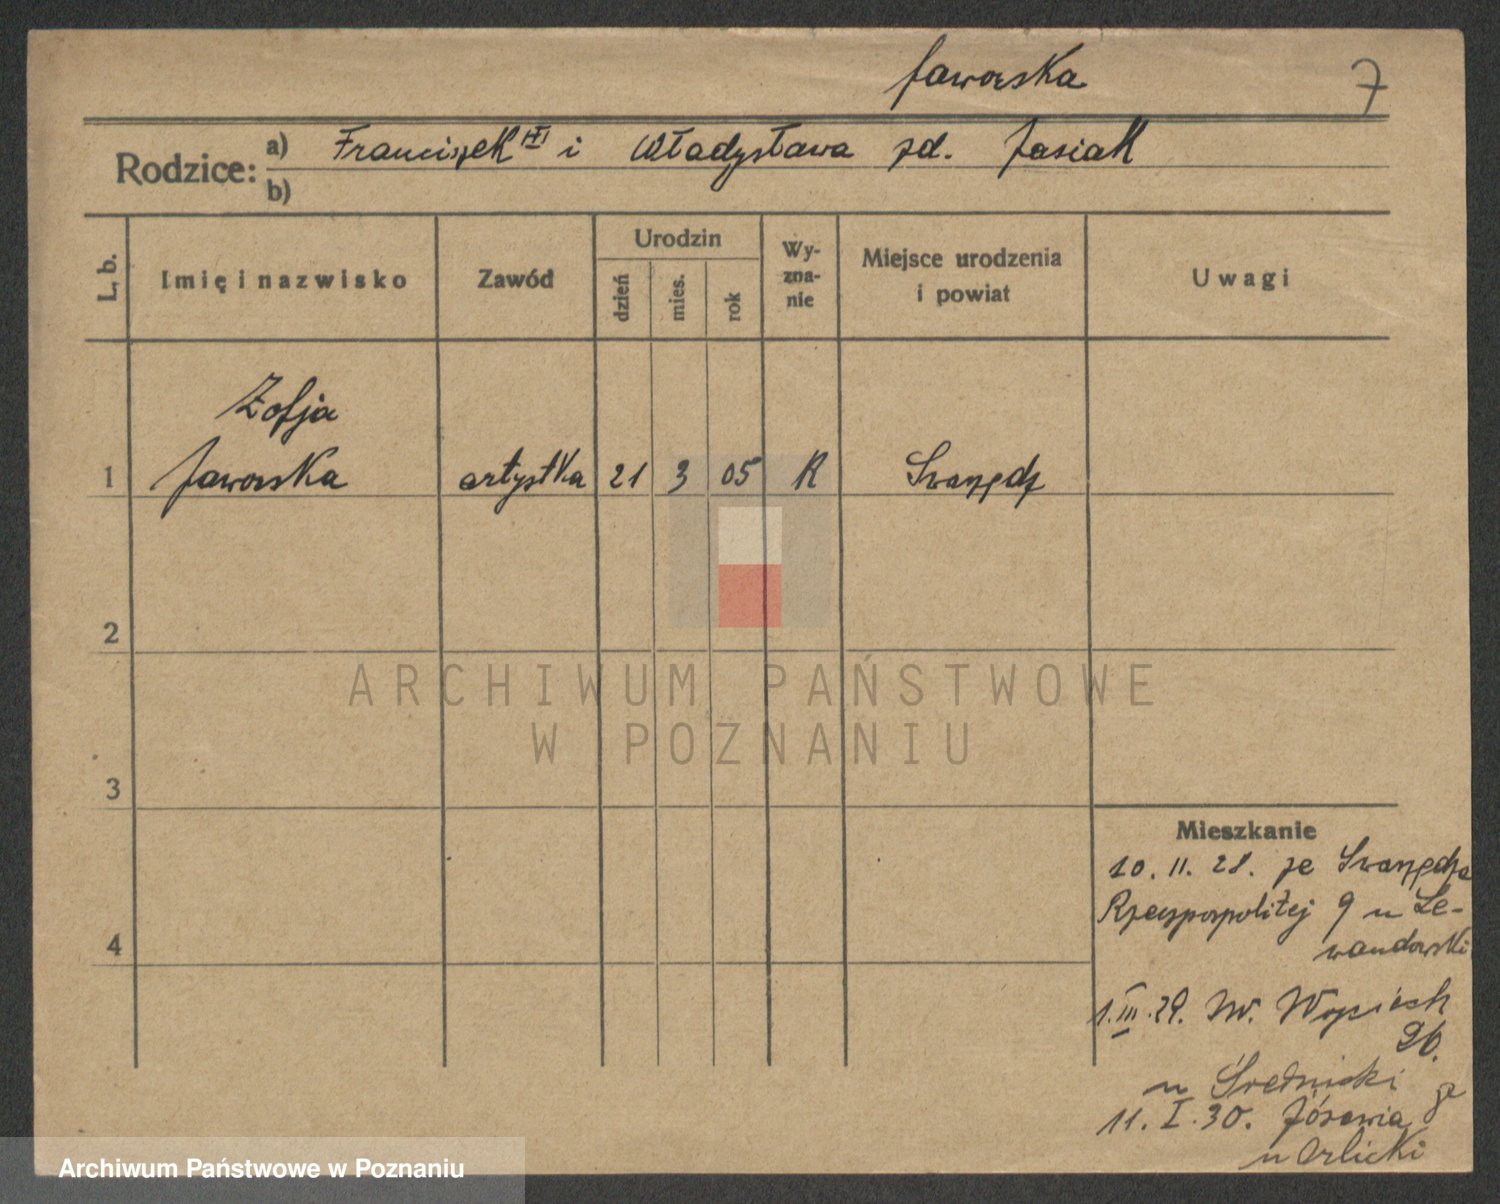 Jaworska
7
Rodzice: a) Franciszek i Władysława zd. Jasiak
b)
L. b.
Imię i nazwisko
Zawód
Urodzin
dzień
mies.
rok
Wy-
zna-
nie
Miejsce urodzenia
i powiat
Uwagi
Zofja
1 Jaworska artystka 21 3 05 K Swarzędz
2
3
4
Mieszkanie
10. II. 28. ze Swarzędza
Rzeczpospolitej 9 u Le-
wandowski
1. III. 29. Św. Wojciech
26.
u Średnicki
11. I. 30. Józewia
u Orlicki
ARCHIWUM PAŃSTWOWE
W POZNANIU
Archiwum Państwowe w Poznaniu